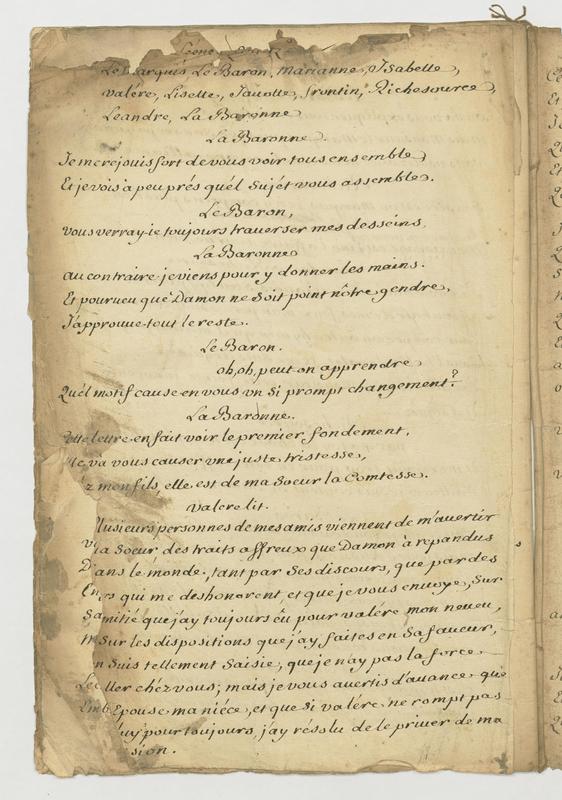 Scene
Le Marquis Le Baron, Marianne, Isabelle,
valére, Lisette, Javotte, frontin, Richesource,
Leandre, La Baronne
La Baronne.
Je me rejouis fort de vous voir tous ensemble,
Et je vois à peu prés quél sujét vous assemble.
Le Baron,
vous verray-ie toujours traverser mes desseins,
La Baronne
au contraire je viens pour y donner les mains.
Et pourveu que Damon ne soit point nôtre gendre,
J'approuve tout le reste.
Le Baron.
oh, oh, peut on apprendre
Quél motif cause en vous un si prompt changement?
La Baronne.
lettre en fait voir le premier fondement,
va vous causer une juste tristesse,
z mon fils, elle est de ma Soeur la Comtesse.
valere lit.
lusieurs personnes de mes amis viennent de m'avertir
la Soeur des traits affreux que Damon à repandus
Dans le monde, tant par ses discours, que par des
qui me deshonorent, et que je vous envoye, Sur
amitié que j'ay toujours êu pour valére mon neveu,
Sur les dispositions que j'ay faites en sa faveur,
n suis tellement saisie, que je n'ay pas la force
ller chéz vous; mais je vous avertis d'avance que
Epouse ma niéce, et que si valére ne rompt pas
uy pour toujours, j'ay résolu de le priver de ma
sion.